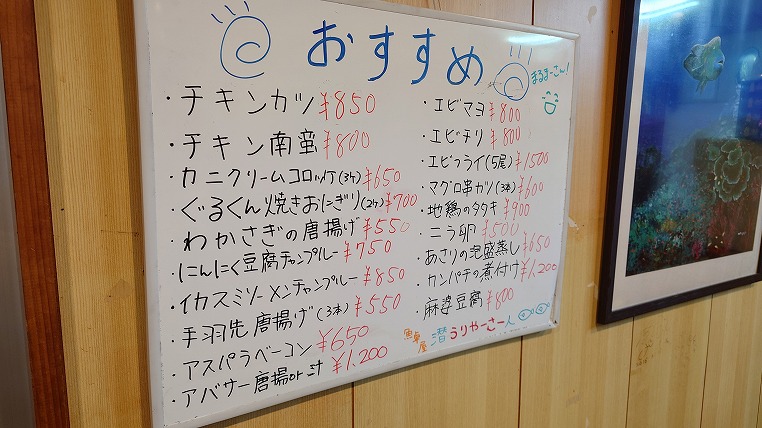 おすすめ
まるまーさん!
・チキンカツ ¥850
・チキン南蛮 ¥800
・カニクリームコロッケ(3ケ) ¥650
・ぐるくん焼きおにぎり(2ケ) ¥700
・わかさぎの唐揚げ ¥550
・にんにく豆腐チャンプルー ¥750
・イカスミソーメンチャンプルー ¥850
・手羽先唐揚げ(3本) ¥550
・アスパラベーコン ¥650
・アバサー唐揚or汁 ¥1,200
・エビマヨ ¥800
・エビチリ ¥800
・エビフライ(5尾) ¥1500
・マグロ串カツ(3本) ¥600
・地鶏のタタキ ¥900
・ニラ卵 ¥500
・あさりの泡盛蒸し ¥650
・カンパチの煮付け ¥1,200
・麻婆豆腐 ¥800
魚卓屋 潜うりやーさー人